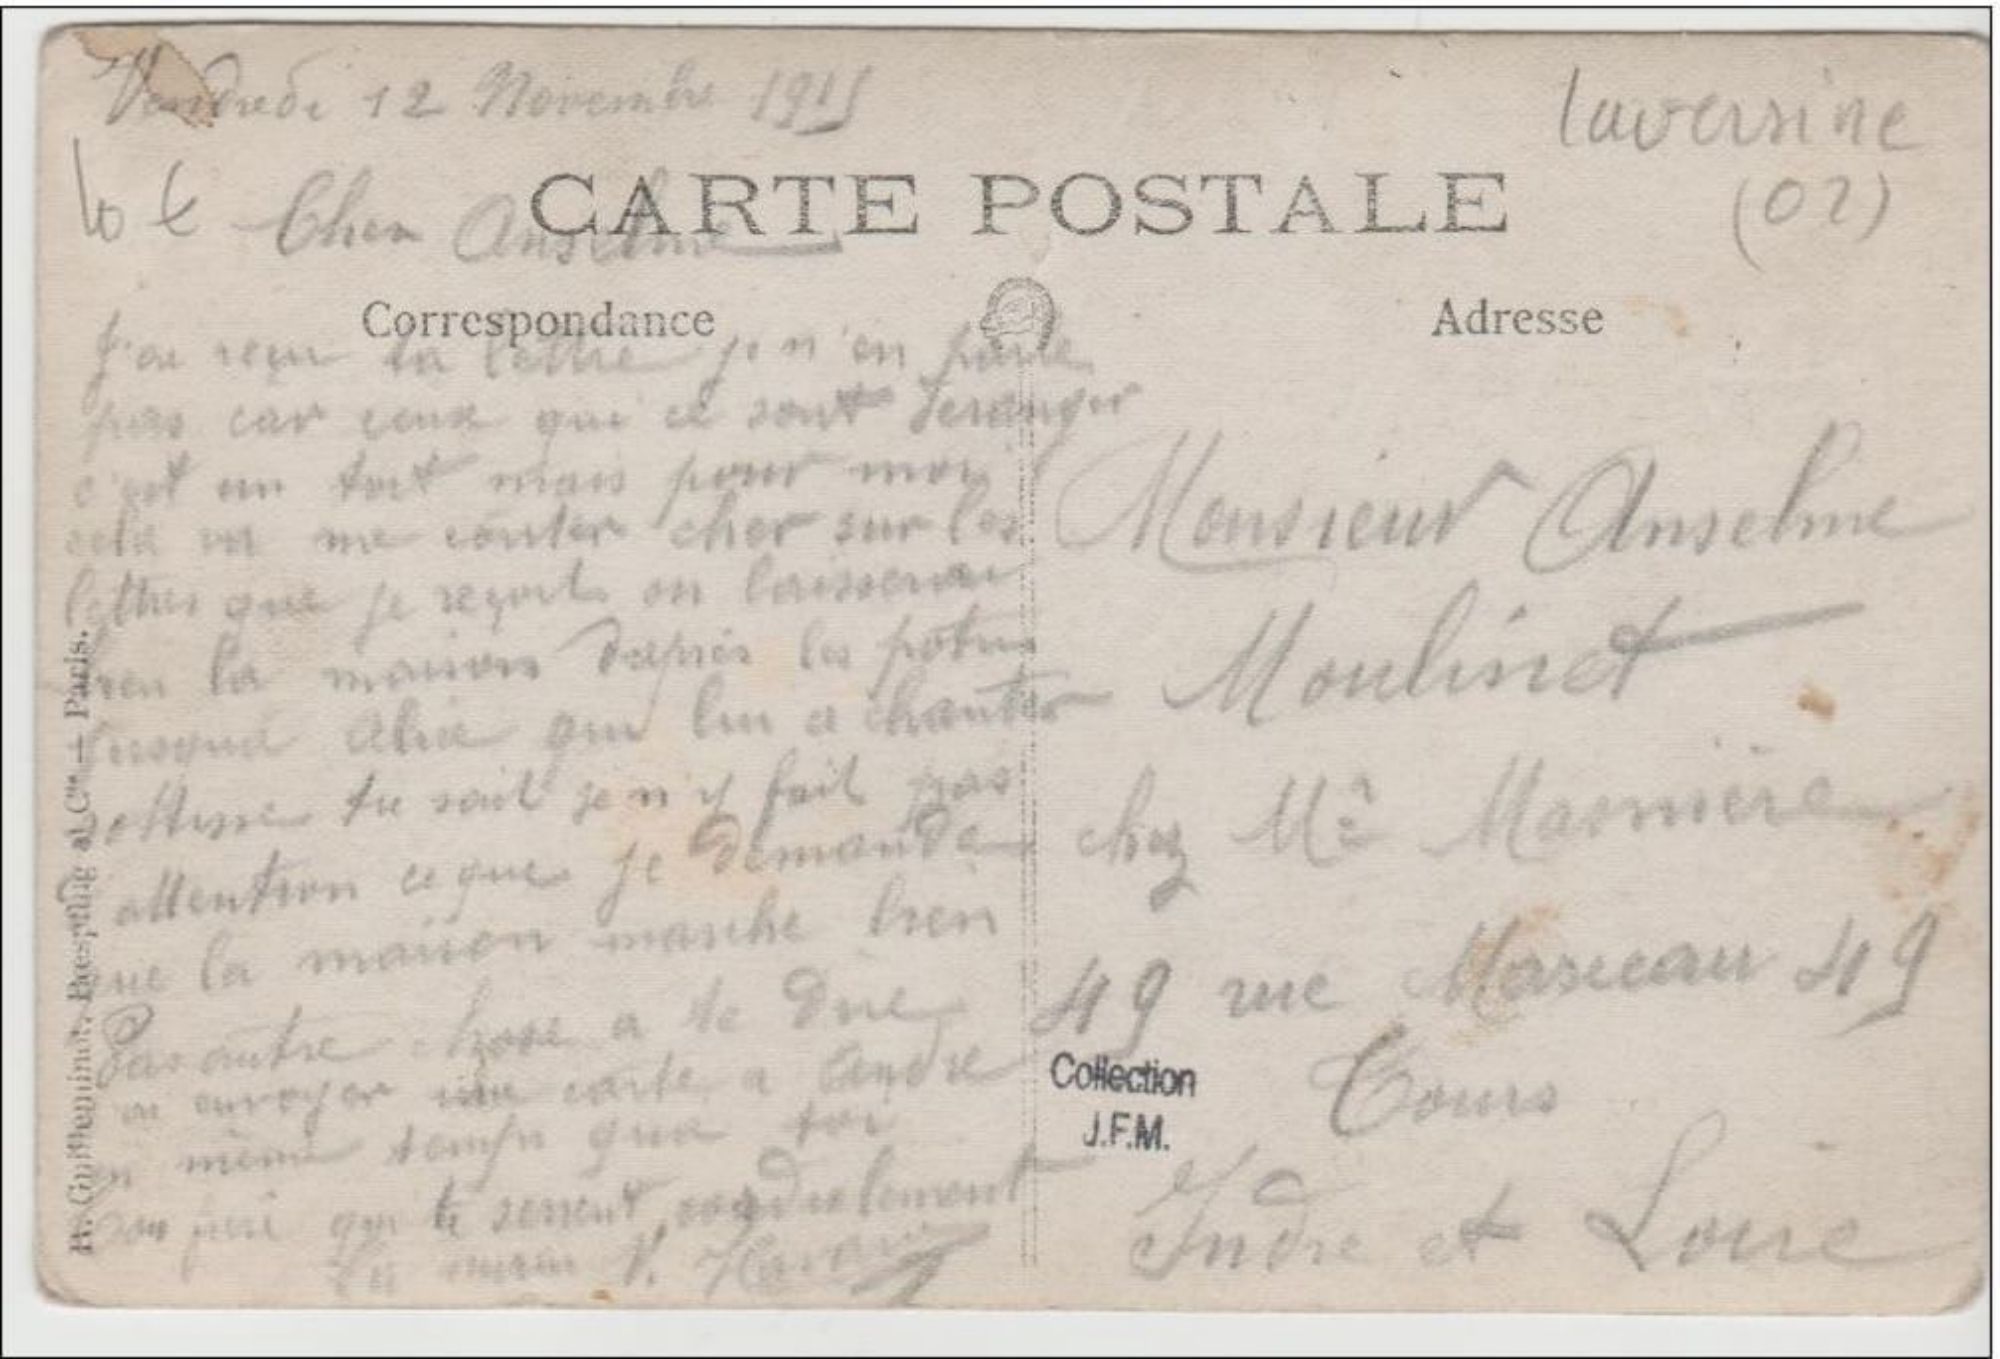 Vendredi 12 Novembre 1915
laversine
(02)
10 €
Cher Anselme
CARTE POSTALE
Correspondance
Adresse
J'ai reçu ta lettre je n'en parle
pas car ceux qui ce sont deranger
c'est un tort mais pour moi
cela va me couter cher sur les
lettres que je reçoit on laisserai
bien la maison dapres les potins
jusqua Alix qui lui a chanter
sottisse tu sait je n'y fait pas
attention ce que je demande
que la maison marche bien
Pas autre chose a te dire
ai envoyer une carte a André
en même temps qua toi
Ton père qui te serrent cordialement
la main V.
Monsieur Anselme
Moulinet
chez Mr
49 rue Marceau 49
Tours
Indre et Loire
Collection
J.F.M.
R. Guilleminot, Bœspflug et Cie — Paris.